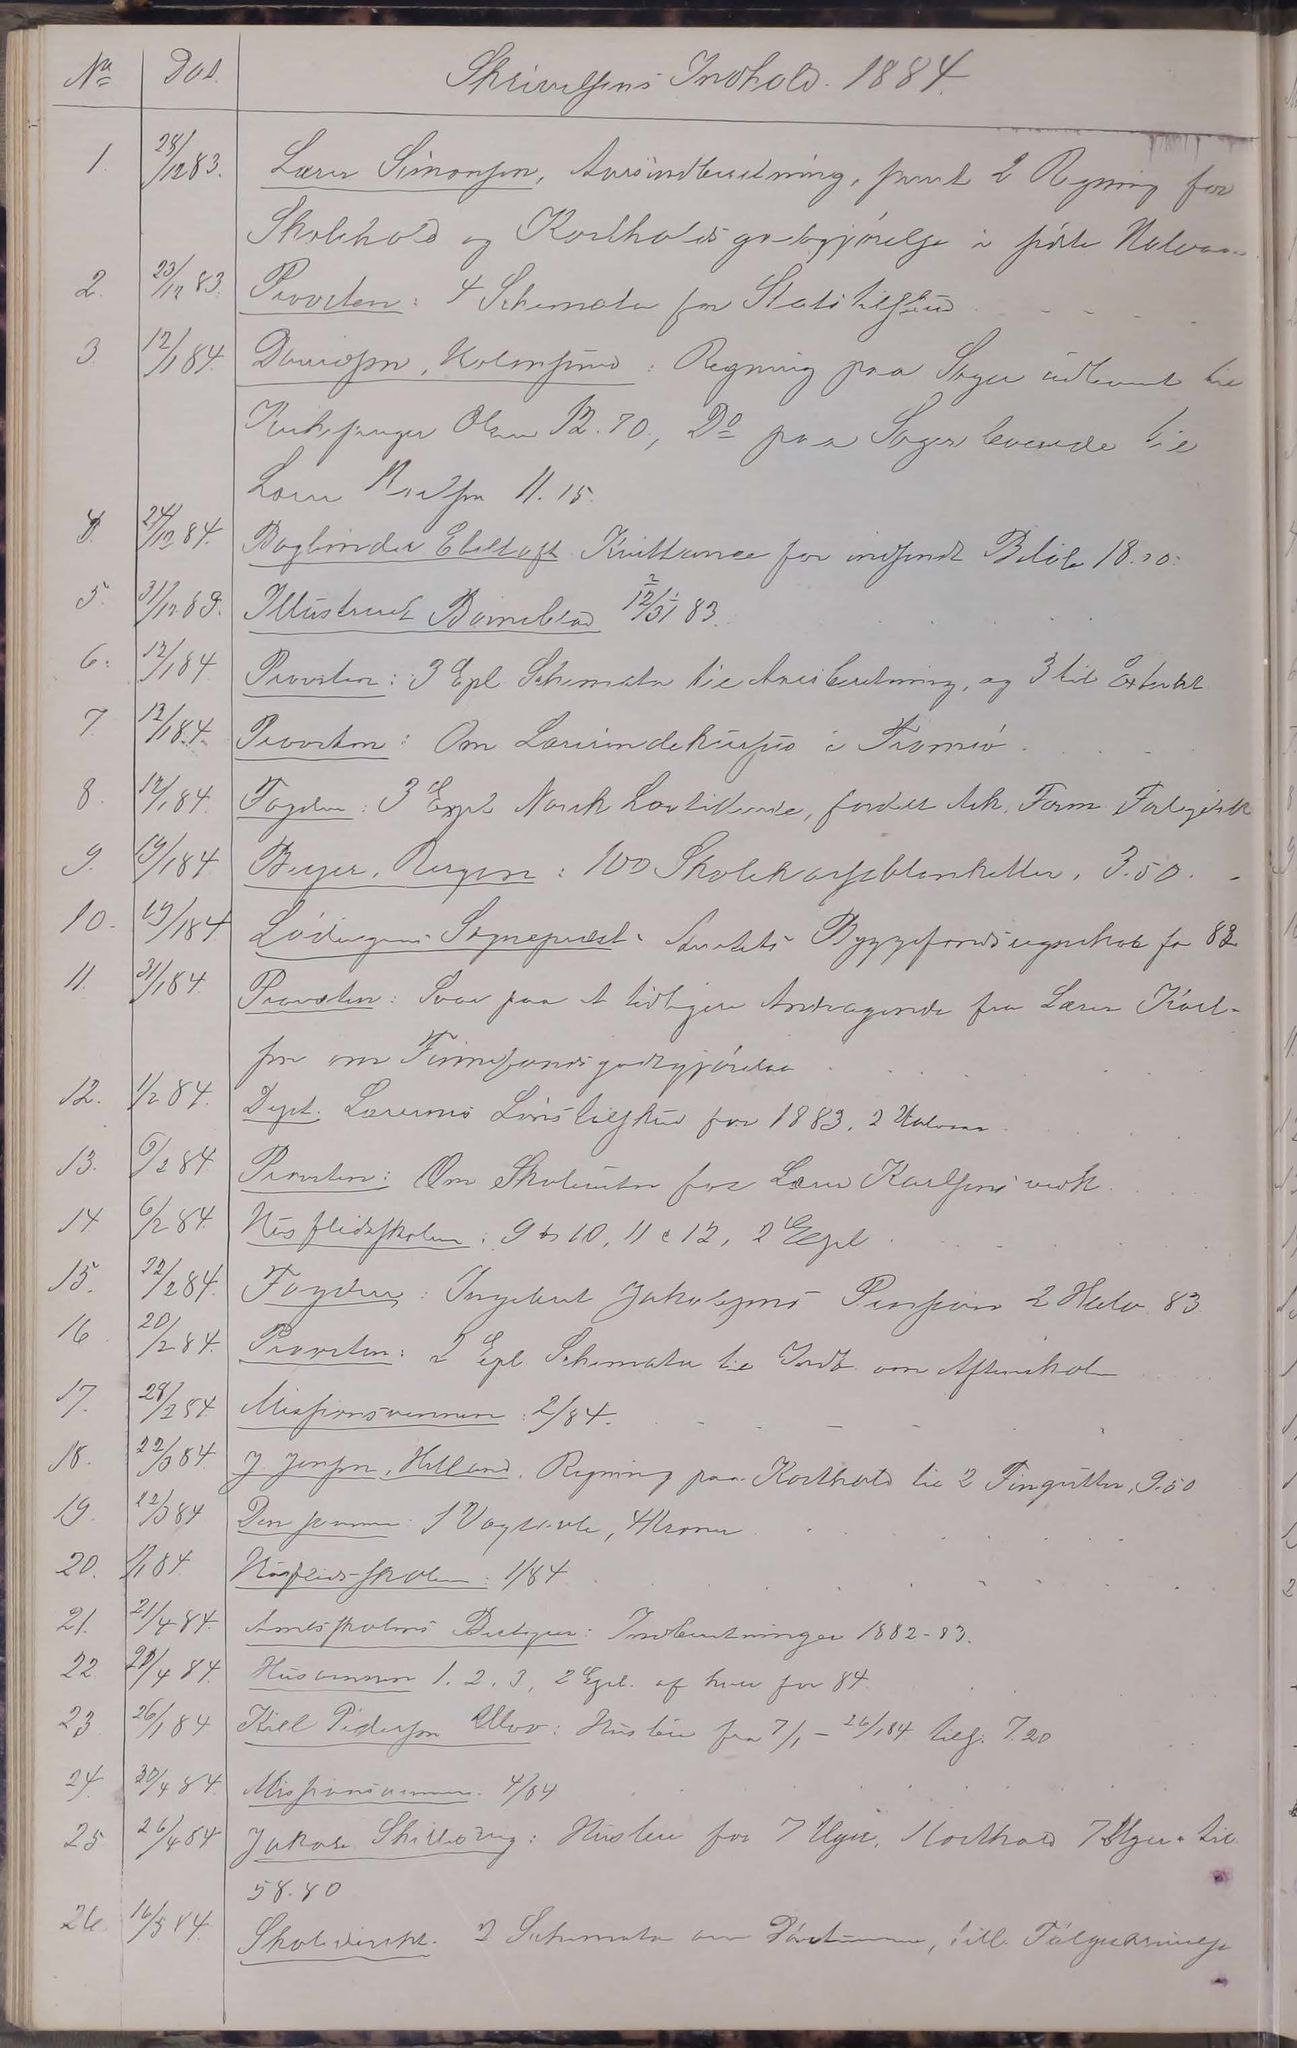 No Dat. Skrivelsens Indhold. 1884.
1. 28/12 83. Lærer Simonsen, Aarsindberetning, samt 2 Regning for
Skolehold og Kostholdsgodtgjörelse i sidste Halvaar
2. 23/12 83. Provsten: 4 Schemata for Statstilskud
3. 12/1 84. Davidsen, Holmsund: Regning paa Sager udleveret til
Kirkesanger Olsen 12.70., Do paa Sager leverede til
Lærer 11.15.
4. 24/12 84. Bogbinder Ebeltoft Kvittance for indsendt Beløb 18.20.
5. 31/12 83. Illustreret Børneblad 83.
6. 12/1 84. Provsten: 3 Expl. Schemata til Aarsberetning, og 3 til Extrakt
7. 12/1 84. Provsten: Om Lærerindekursus i Tromsö.
8. 12/1 84. Fogden: 3 Expl Norsk Lovtidende, fordelt Ark. Form. Forligelsk
9. 19/1 84. Beyer, Bergen: 100 Skolekasseblanketter, 3.50.
10. 19/1 84. Lödingens Sognepræst. Amtets Byggefondsregnskab for 82
11. 31/1 84. Provsten: Svar paa et tidligere Andragende fra Lærer Karl-
sen om Finnefondsgodtgjörelse
12. 1/2 84. Dept. Lærernes Lönstilskud for 1883, 2 Halvaar
13. 6/2 84 Provsten: Om Skoleruter for Lærer Karlsens vedk.
14 6/2 84. Husflidsskolen: 9 & 10, 11 & 12, 2 Expl
15. 22/2 84. Fogden: Ingebret Jakobsens Pension 2 Halv. 83
16 20/2 84. Provsten: 2 Expl. Schemata til Indb. om Aftenskole
17. 28/2 84 Missionsvennen: 2/84.
18. 22/3 84. J. Jensen, Helland. Regning paa Kosthold til 2 Fingutter, 9.50
19. 22/3 84 Den samme: 1 Vægtavle, 4 Kroner
20. 1/1 84. Husflids-skolen: 1/84
21. 21/4 84. Amtsskolens Bestyrer: Indberetninger 1882-83.
22. 22/4 84. Husvennen 1. 2. 3, 2 Expl. af hver for 84.
23 26/1 84 Kill Pedersen: Husleie fra 7/1 - 26/1 84 tils. 7.20
24. 30/4 84. Missionsvennen. 4/84
25 26/4 84 Jakob: Husleie for 7 Uger, Kosthold 7 Uger til.
58.80
26. 16/5 84. Skoledirekt. 2 Schemata om